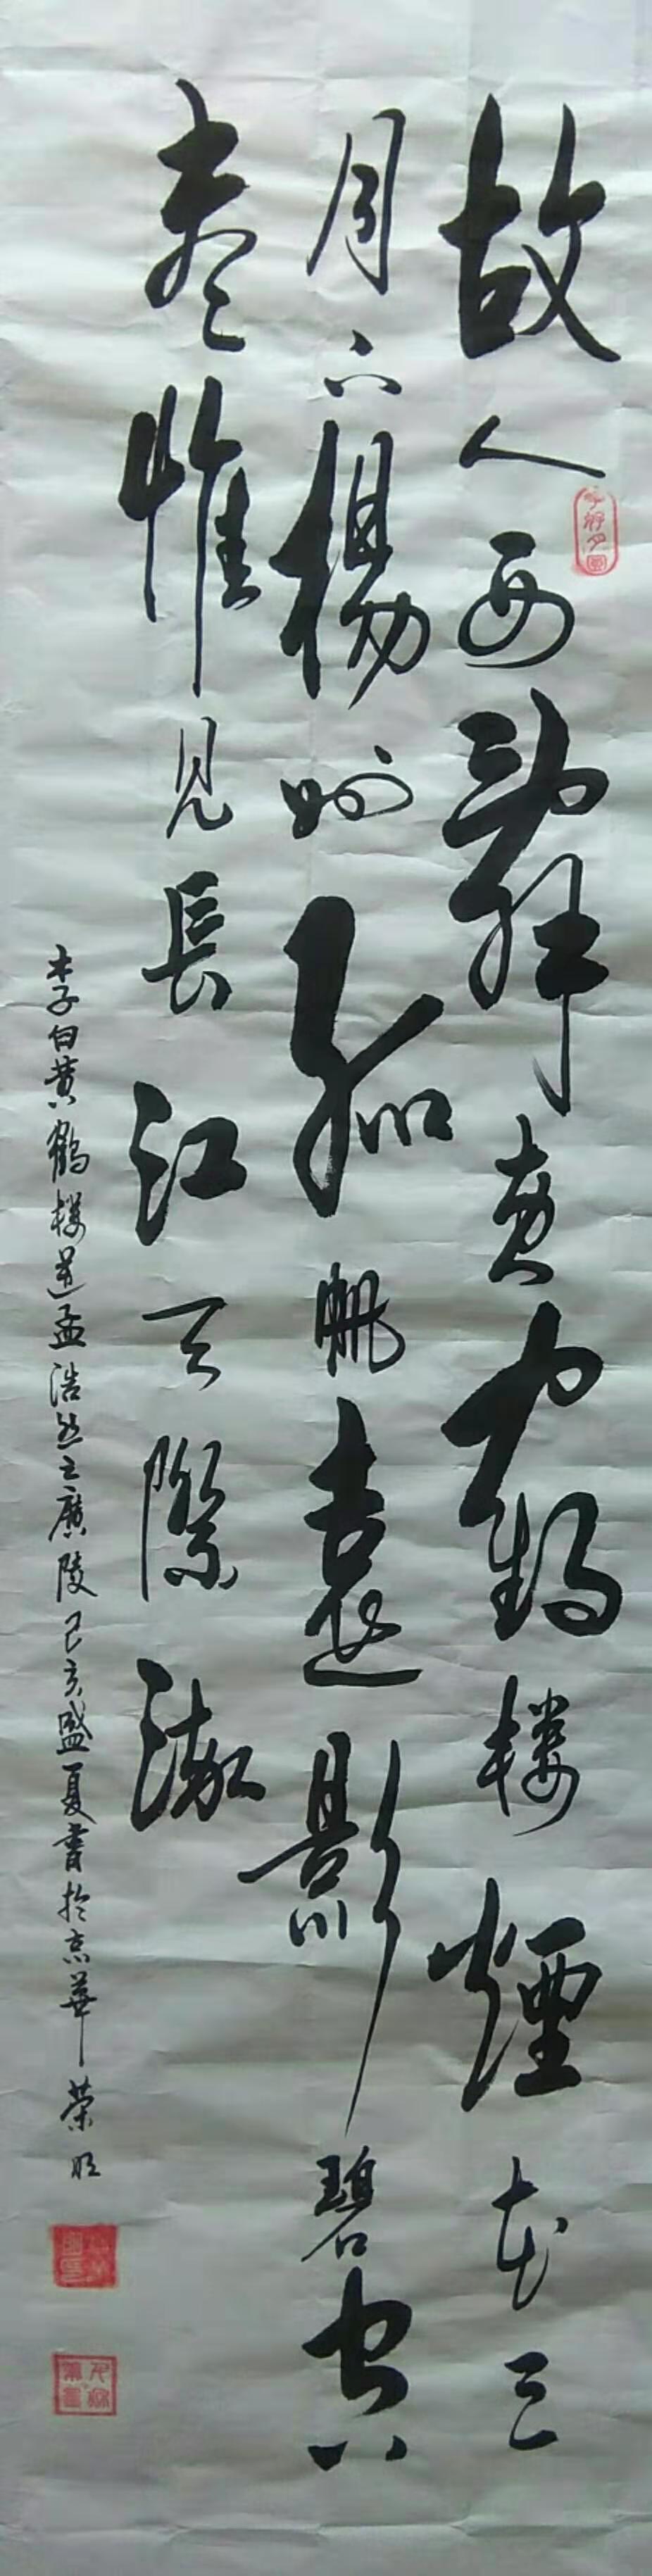 故人西辭黄鶴楼煙花三
月下楊州孤帆遠影碧空
盡惟見長江天際流
李白黄鶴楼送孟浩然之廣陵己亥盛夏書於京華荣